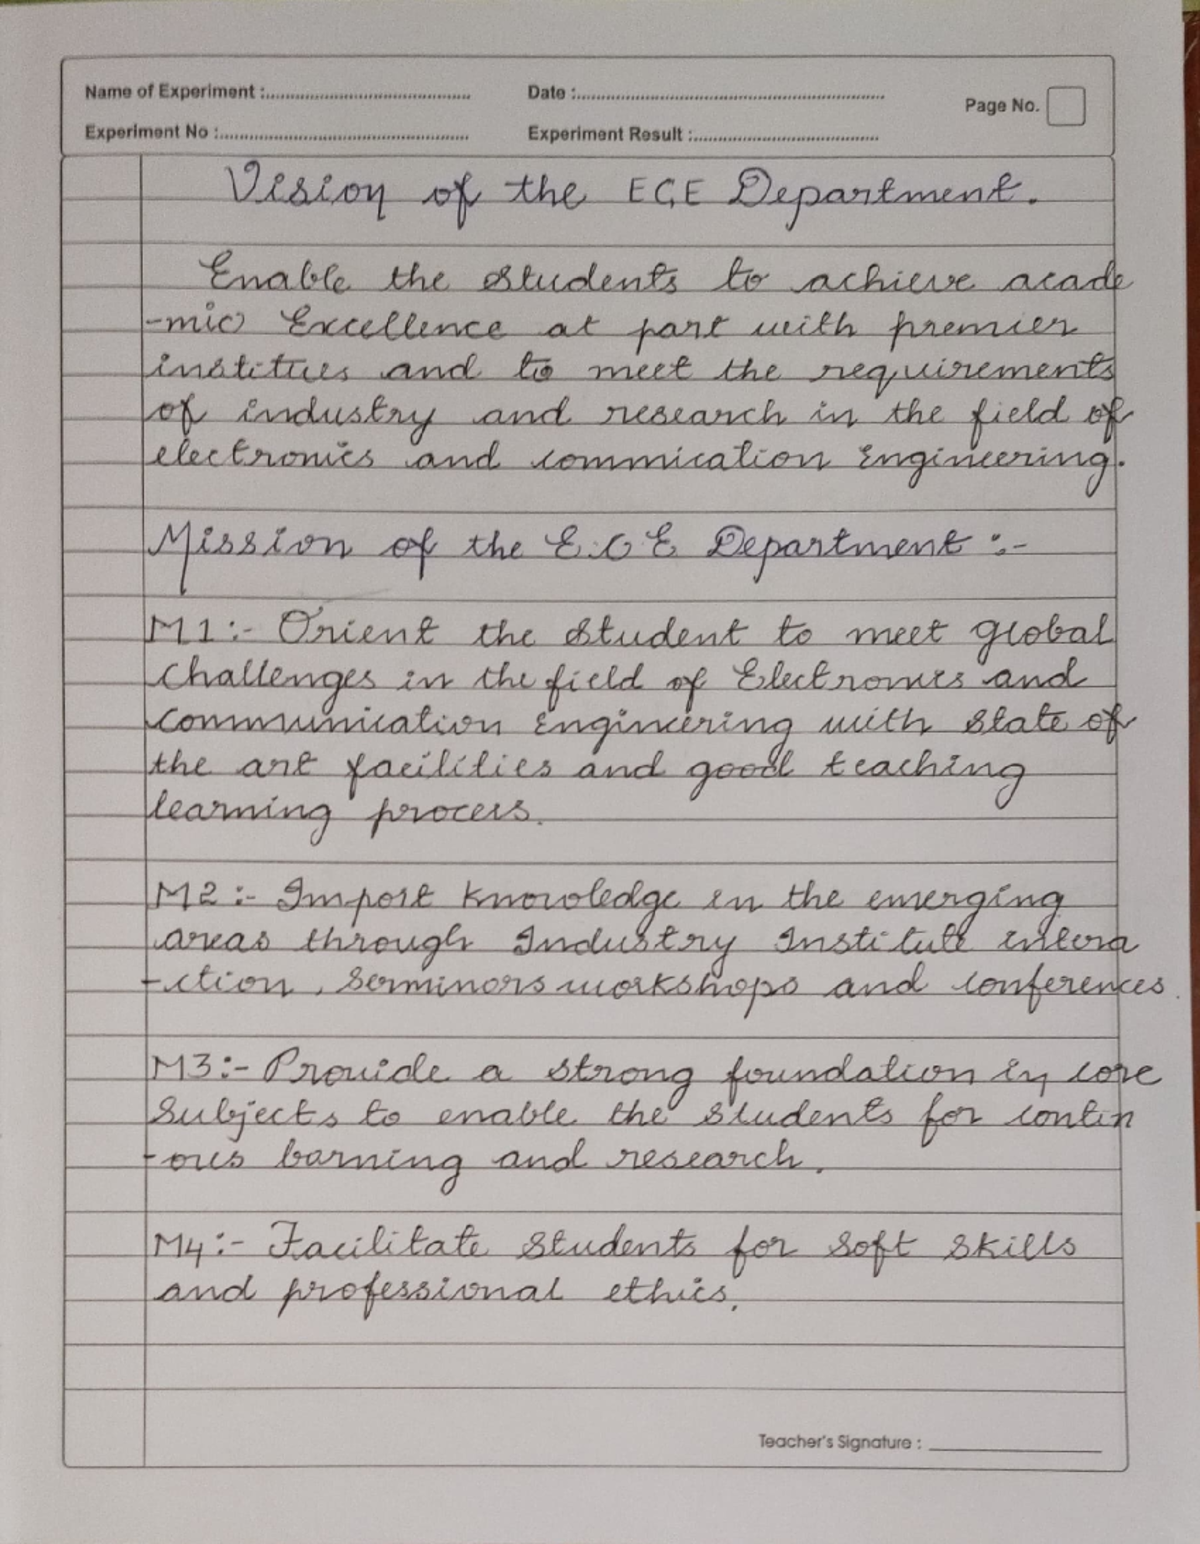 Name of Experiment :.......................................... Date :..............................................................
Page No.
Experiment No :................................................... Experiment Result :.....................................
Vision of the ECE Department.
Enable the students to achieve acade
-mic Excellence at part with premier
institues and to meet the requirements
of industry and research in the field of
electronics and commication Engineering.
Mission of the E.C.E Department :-
M1:- Orient the student to meet global
challenges in the field of Electronics and
communication Engineering with state of
the art facilities and good teaching
learning process.
M2:- Import knowledge in the emerging
areas through Industry Institute intera
-ction, Serminors workshops and conferences.
M3:- Provide a strong foundation in core
subjects to enable the students for contin
-ous barning and research.
M4:- Facilitate students for soft skills
and professional ethics.
Teacher's Signature : ____________